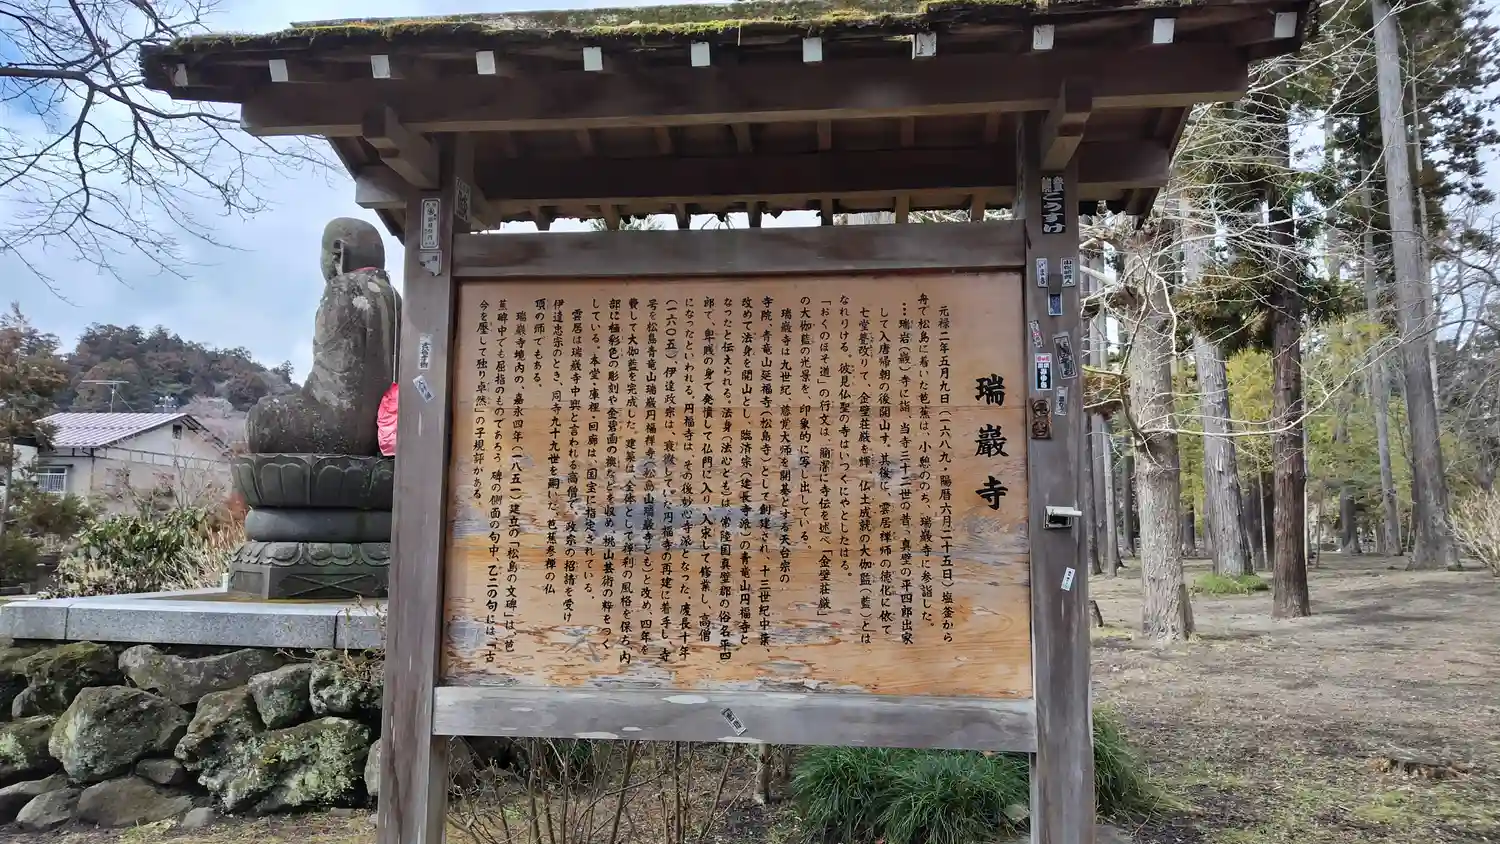 瑞巖寺
元禄二年五月九日(一六八九・陽暦六月二十五日)塩釜から
舟で松島に着いた芭蕉は、小憩ののち、瑞巖寺に参詣した。
…瑞岩(巖)寺に詣、当寺三十二世の昔、真壁の平四郎出家
して入唐帰朝の後開山す。其後に、雲居禅師の徳化に依て
七堂甍改りて、金壁荘厳光を輝、仏土成就の大伽藍(藍)とは
なれりける。彼見仏聖の寺はいづくにやとしたはる。
「おくのほそ道」の行文は、簡潔に寺伝を述べ「金壁荘厳」
の大伽藍の光景を、印象的に写し出している。
瑞巖寺は九世紀、慈覚大師を開基とする天台宗の
寺院、青竜山延福寺(松島寺)として創建され、十三世紀中葉、
改めて法身を開山とし、臨済宗(建長寺派)の青竜山円福寺と
なったと伝えられる。法身(法心とも)は常陸国真壁郡の俗名平四
郎で、卑賎の身で発憤して仏門に入り、入宋して修業し、高僧
になったといわれる。円福寺は、その後妙心寺派となった。慶長十年
(一六〇五)伊達政宗は、衰微していた円福寺の再建に着手し、寺
号を松島青竜山瑞巖円福禅寺(松島山瑞巖寺とも)と改め、四年を
費して大伽藍を完成した。建築は全体として禅刹の風格を保ち、内
部に極彩色の彫刻や金碧画の襖などを収め、桃山芸術の粋をつく
している。本堂・庫裡・回廊は、国宝に指定されている。
雲居は瑞巖寺中興と言われる高僧で、政宗の招請を受け
伊達忠宗のとき、同寺九十九世を嗣いだ。芭蕉参禅の仏
頂の師でもある。
瑞巖寺境内の、嘉永四年(一八五一)建立の「松島の文碑」は、芭
蕉碑中でも屈指のものであろう。碑の側面の句中、乙二の句には、「古
今を壓して独り卓然」の子規評がある。
こうすけ